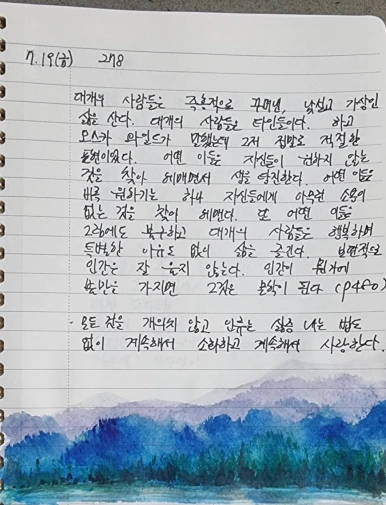 7.19(금) 278
대개의 사람들은 즉흥적으로 꾸며낸, 낯설고 가상인
삶을 산다. 대개의 사람들은 타인들이다. 하고
오스카 와일드가 말했는데 그저 진짜로 적절한
표현이었다. 어떤 이들은 자신들이 원하지 않는
것을 찾아 헤매면서 생을 탕진한다. 어떤 이들은
비록 원하기는 하나 자신들에게 아무런 소용이
없는 것을 찾아 헤맨다. 또 어떤 이들은
그럼에도 불구하고 대개의 사람들은 행복하며
특별한 이유도 없이 삶을 즐긴다. 보편적으로
인간은 잘 울지 않는다. 인간이
불만을 가지면 그것은 문학이 된다 (p480)
· 모든 것을 개의치 않고 인류는 싫증 내는 법도
없이 계속해서 소화하고 계속해서 사랑한다.